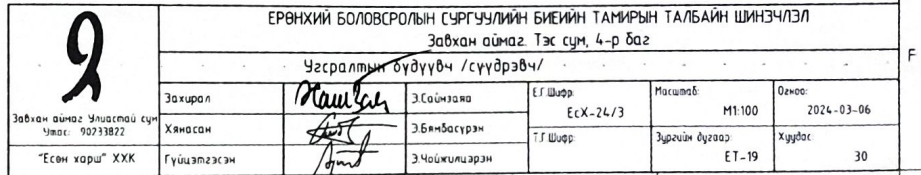 ЕРӨНХИЙ БОЛОВСРОЛЫН СУРГУУЛИЙН БИЕИЙН ТАМИРЫН ТАЛБАЙН ШИНЭЧЛЭЛ
Завхан аймаг. Тэс сум, 4-р баг
Угсралтын бүдүүвч /сүүдрэвч/
F
Завхан аймаг Улиастай сум
Утас: 90233822
"Есөн харш" ХХК
Захирал
Э.Саинзаяа
Хянасан
Э.Бямбасүрэн
Гүйцэтгэсэн
Э.Чойжилцэрэн
Е.Г.Шифр:
ЕсХ-24/3
Т.Г.Шифр:
Масштаб:
М1:100
Зургийн дугаар:
ЕТ-19
Огноо:
2024-03-06
Хуудас:
30